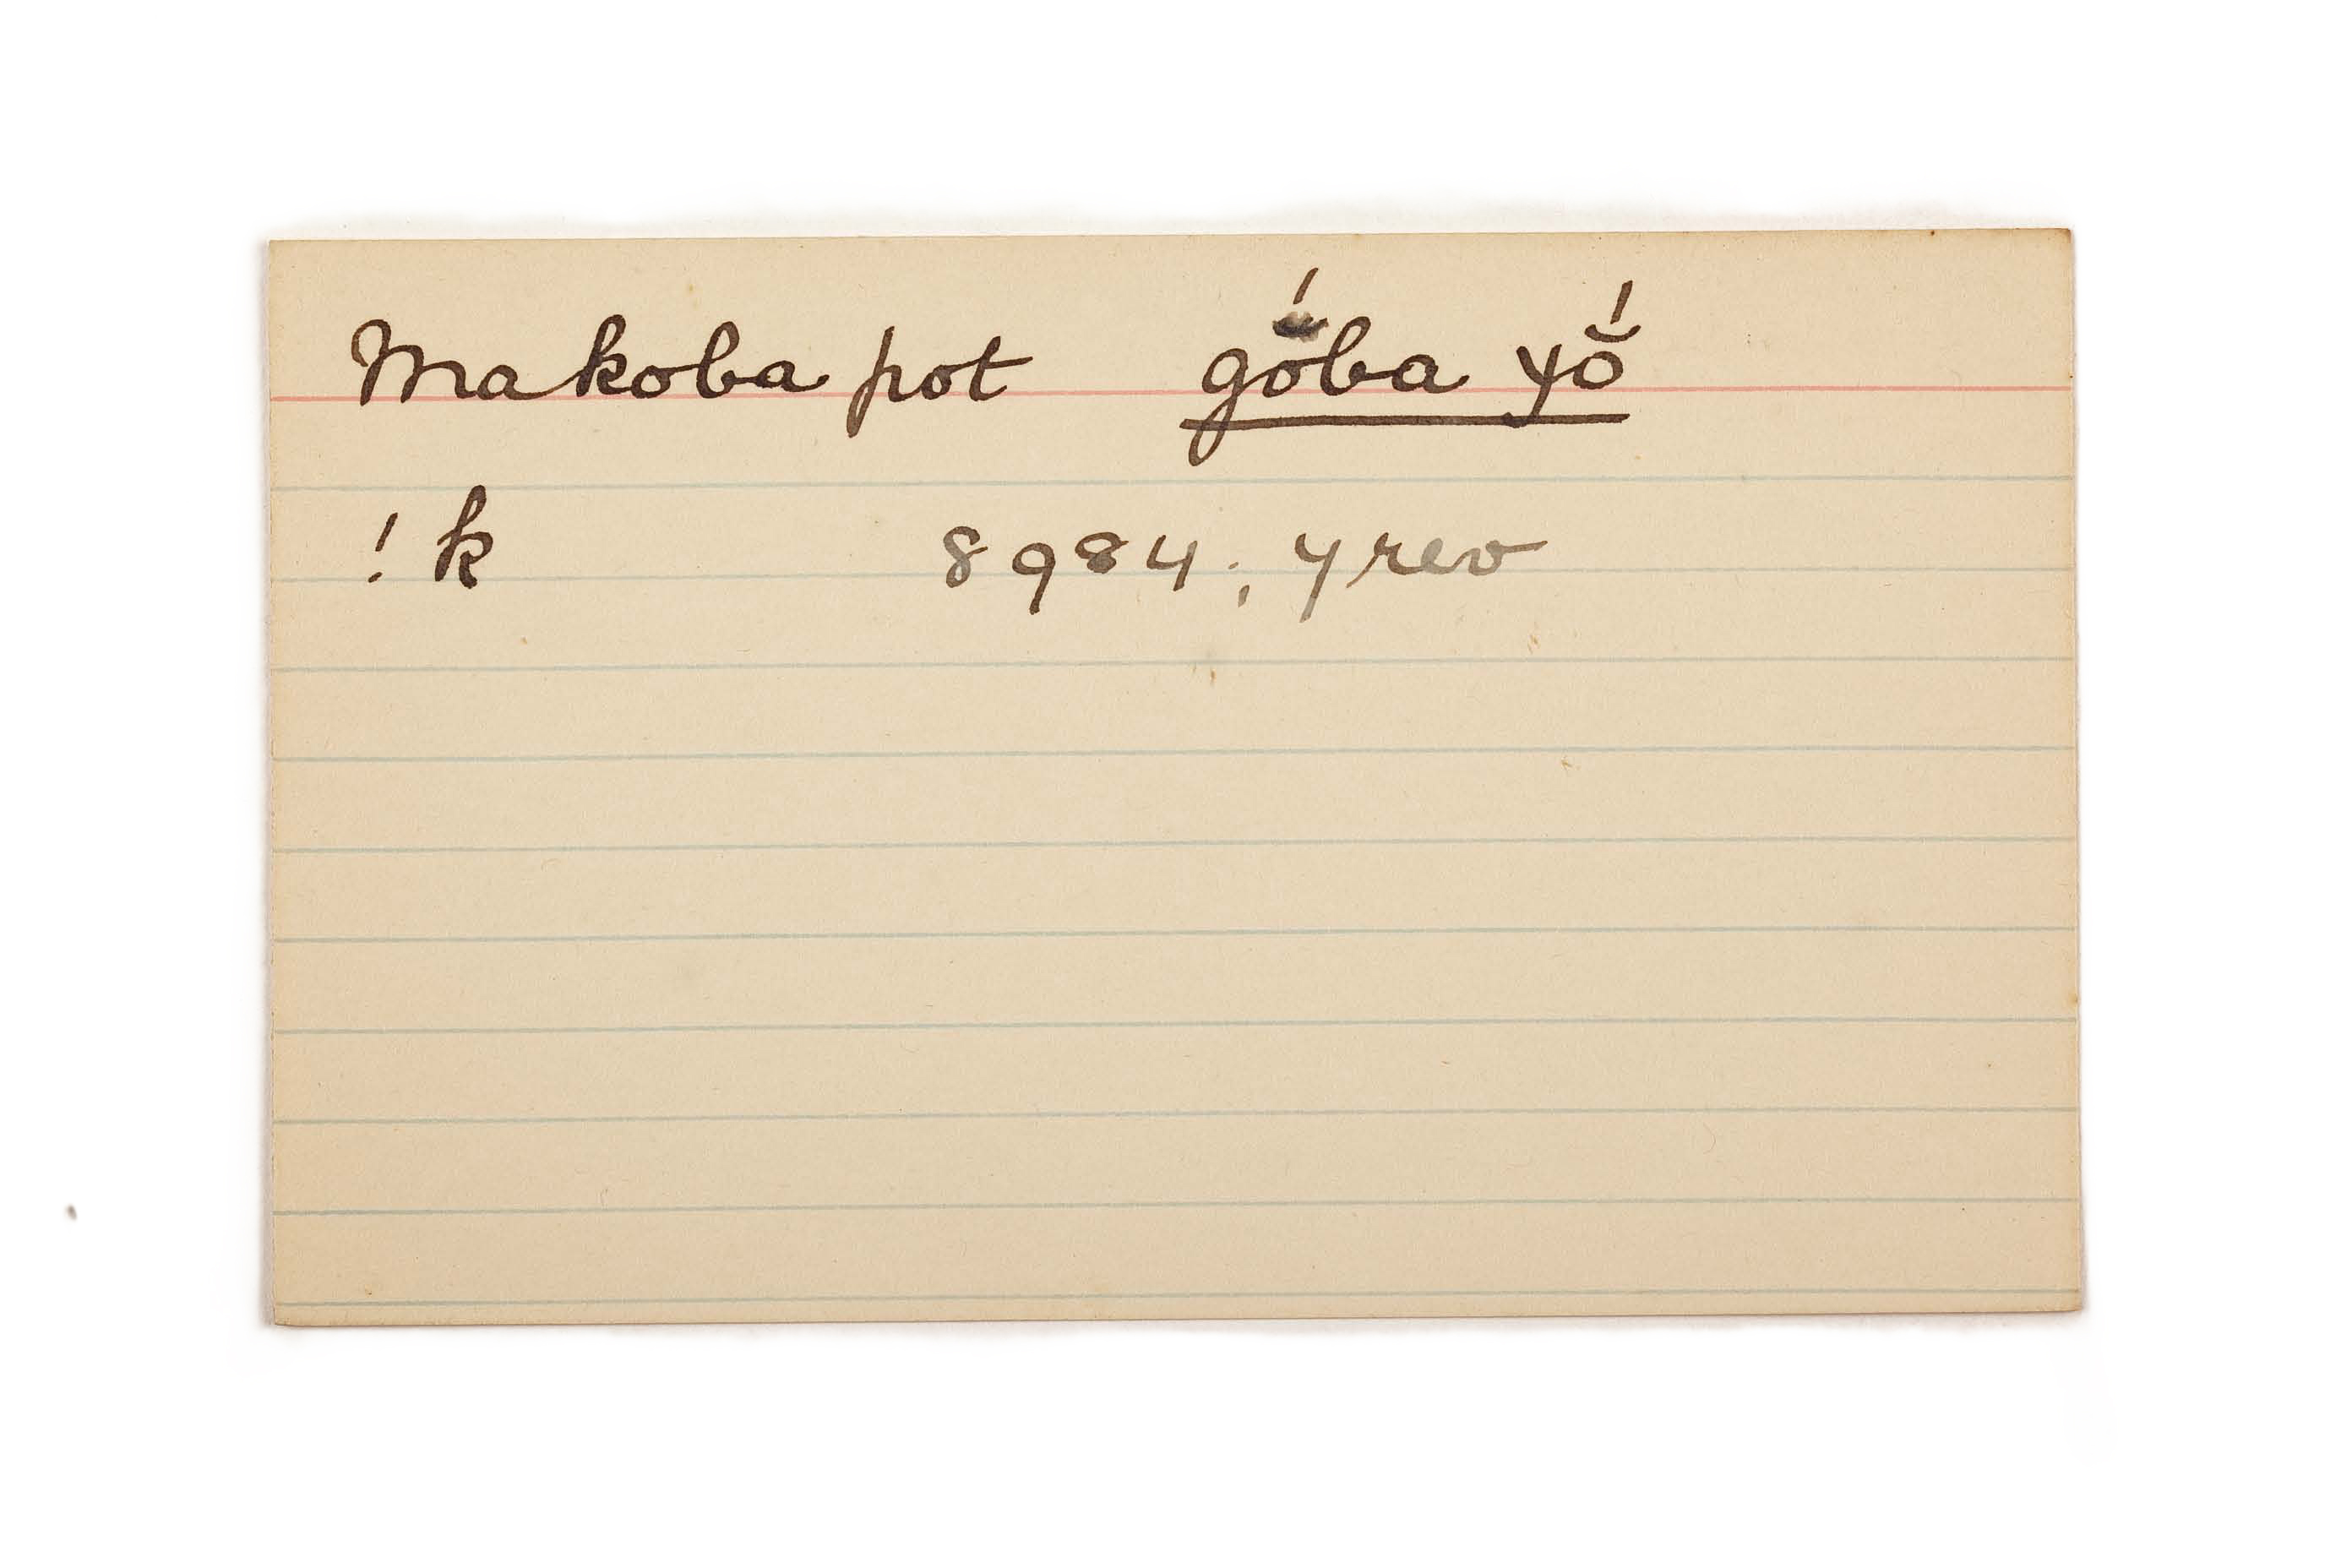 Makoba pot gŏ́ba yŏ́
!k 8984; yrev